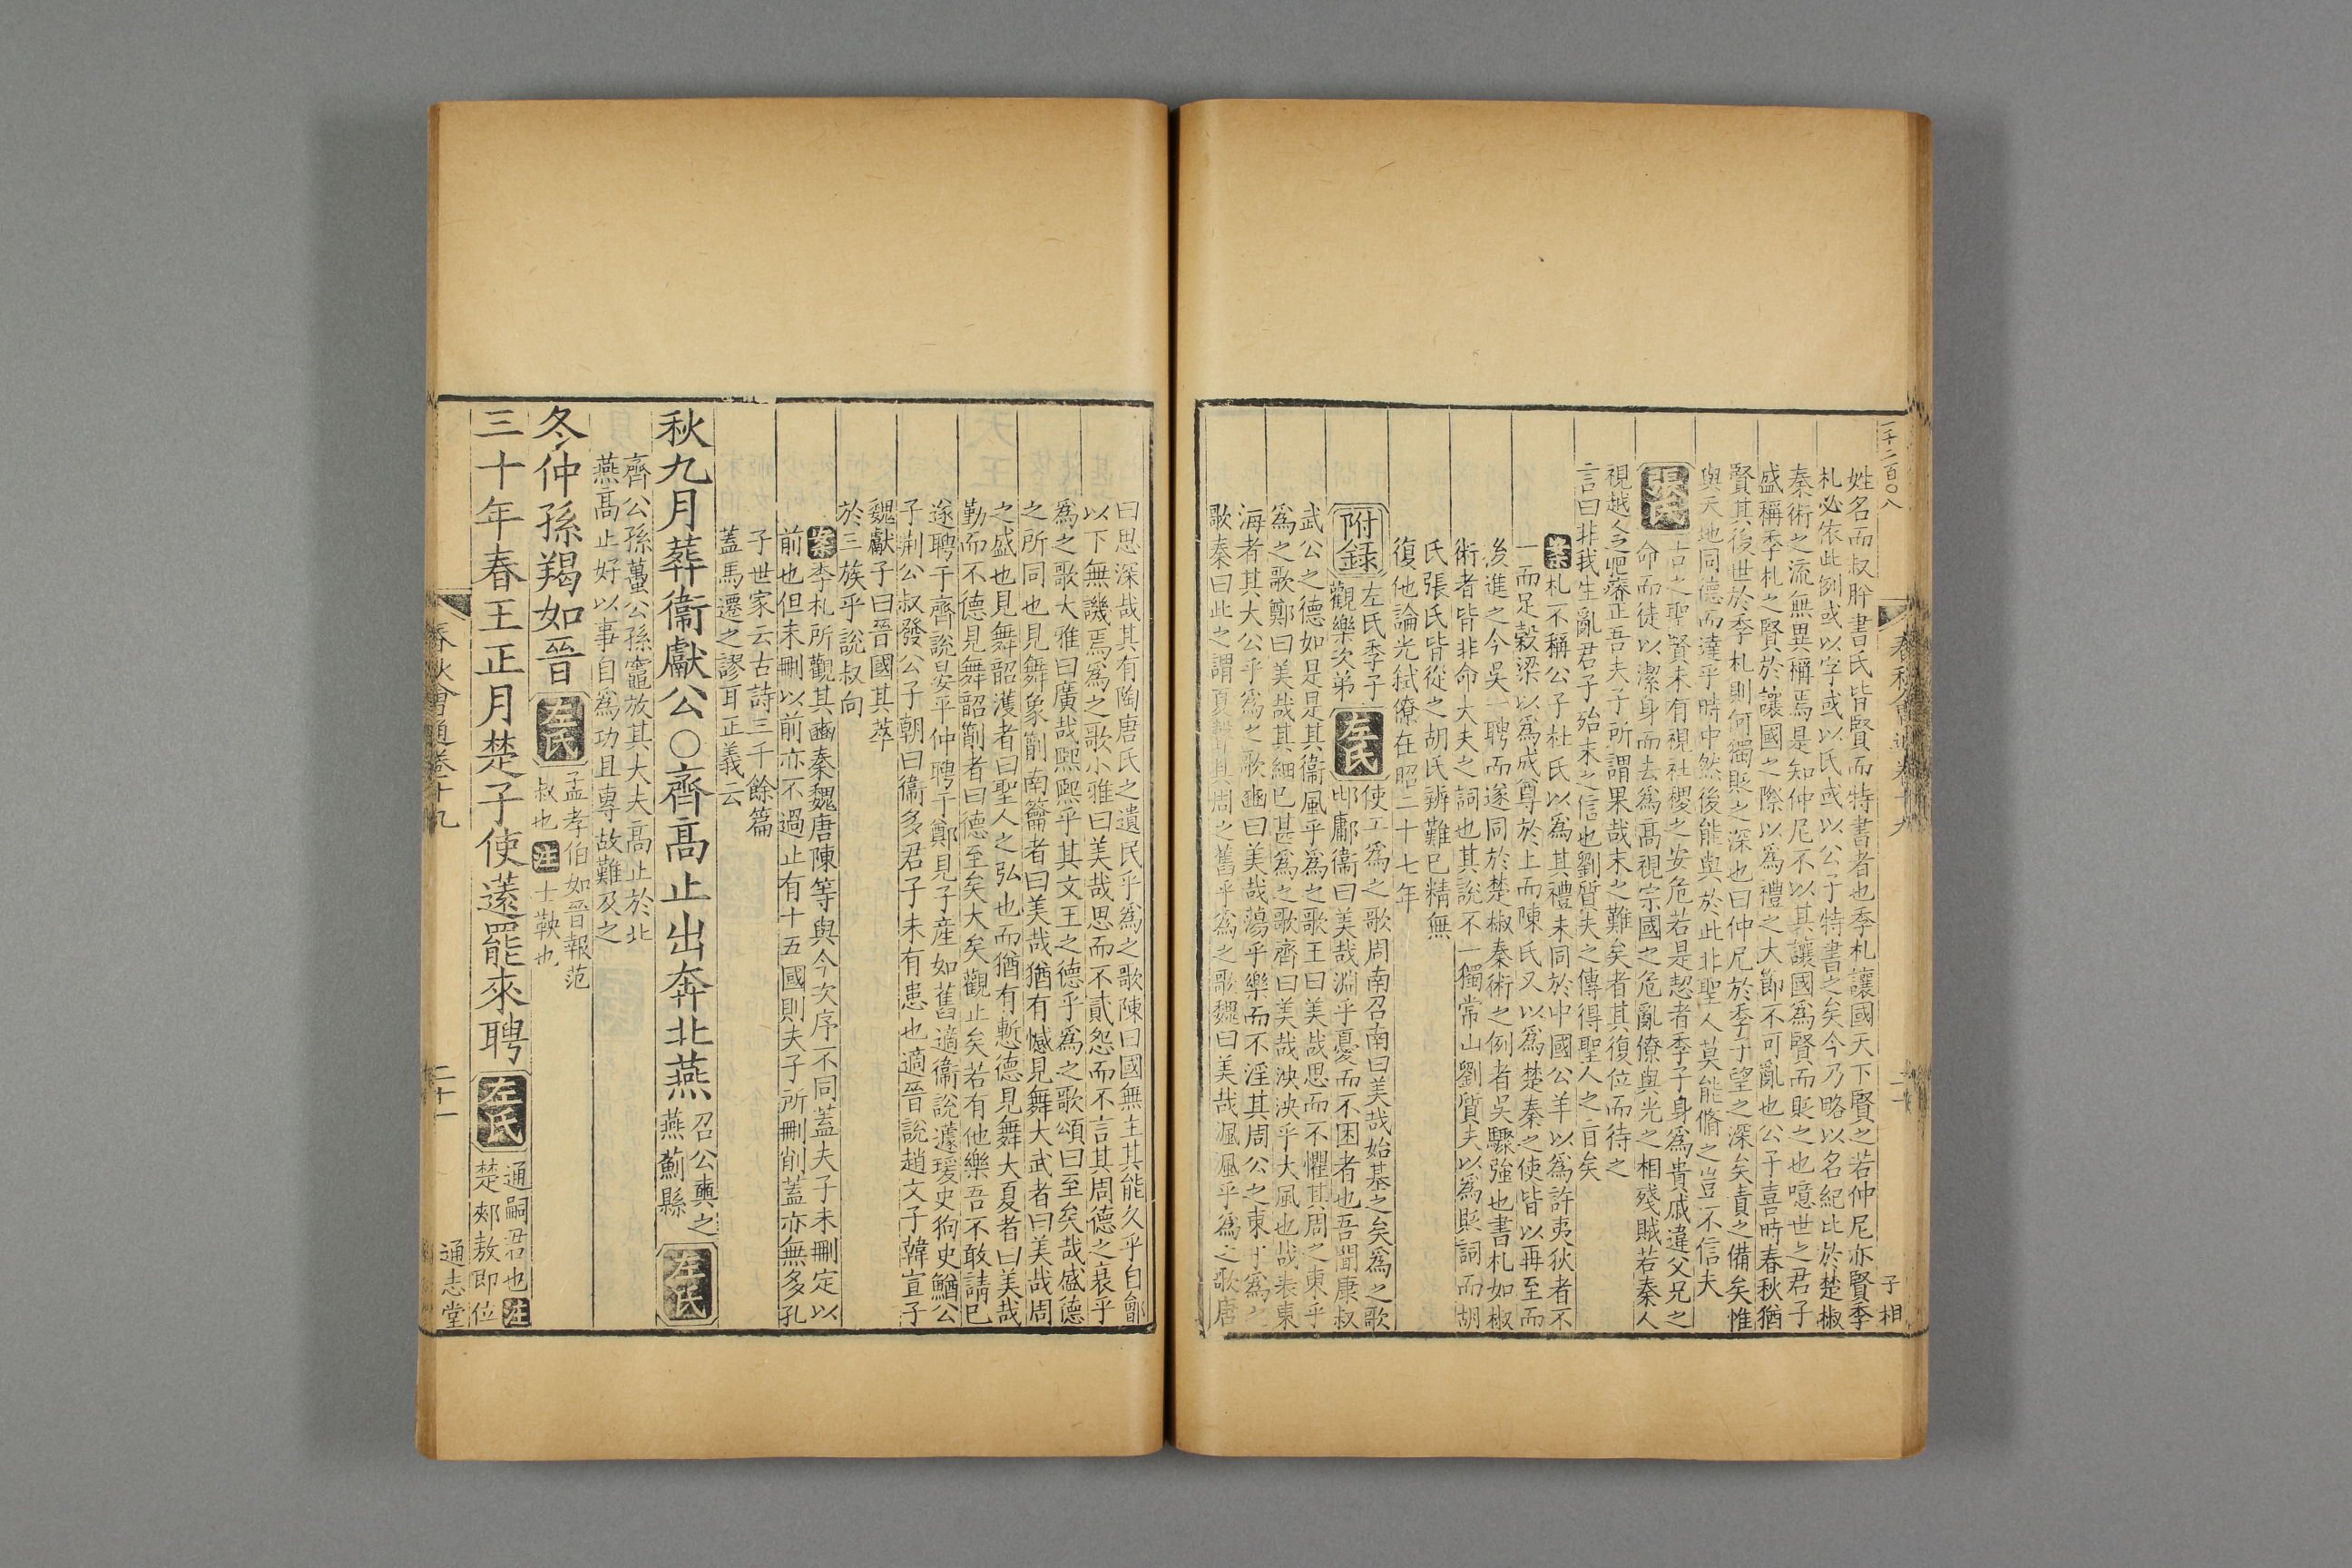 一千二百〇八
春秋會通卷十九
二十一
子相
姓名而叔肸書氏皆賢而特書者也季札讓國天下賢之若仲尼亦賢季
札必依此例或以字或以氏或以公子特書之矣今乃略以名紀比於楚椒
秦術之流無異稱焉是知仲尼不以其讓國爲賢而貶之也噫世之君子
盛稱季札之賢於讓國之際以爲禮之大節不可亂也公子喜時春秋猶
賢其後世於季札則何獨貶之深也曰仲尼於季子望之深矣責之備矣惟
與天地同德而達乎時中然後能與於此非聖人莫能脩之豈不信夫
張氏
古之聖賢未有視社稷之安危若是恝者季子身爲貴戚違父兄之
命而徒以潔身而去爲高視宗國之危亂僚與光之相殘賊若秦人
視越人之肥瘠正吾夫子所謂果哉末之難矣者其復位而待之
言曰非我生亂君子殆未之信也劉質夫之傳得聖人之旨矣
案札不稱公子杜氏以爲其禮未同於中國公羊以爲許夷狄者不
一而足穀梁以爲成尊於上而陳氏又以爲楚秦之使皆以再至而
後進之今吳一聘而遂同於楚椒秦術之例者吳驟強也書札如椒
術者皆非命大夫之詞也其說不一獨常山劉質夫以爲貶詞而胡
氏張氏皆從之胡氏辨難已精無
復他論光弑僚在昭二十七年
附録
左氏季子
觀樂次第
左氏
使工爲之歌周南召南曰美哉始基之矣爲之歌
邶鄘衞曰美哉淵乎憂而不困者也吾聞康叔
武公之德如是是其衞風乎爲之歌王曰美哉思而不懼其周之東乎
爲之歌鄭曰美哉其細已甚爲之歌齊曰美哉泱泱乎大風也哉表東
海者其大公乎爲之歌豳曰美哉蕩乎樂而不淫其周公之東乎爲之
歌秦曰此之謂夏聲其周之舊乎爲之歌魏曰美哉渢渢乎爲之歌唐
曰思深哉其有陶唐氏之遺民乎爲之歌陳曰國無主其能久乎自鄶
以下無譏焉爲之歌小雅曰美哉思而不貳怨而不言其周德之衰乎
爲之歌大雅曰廣哉熙熙乎其文王之德乎爲之歌頌曰至矣哉盛德
之所同也見舞象箾南籥者曰美哉猶有憾見舞大武者曰美哉周
之盛也見舞韶濩者曰聖人之弘也而猶有慙德見舞大夏者曰美哉
勤而不德見舞韶箾者曰德至矣大矣觀止矣若有他樂吾不敢請已
遂聘于齊說晏平仲聘于鄭見子産如舊適衞說蘧瑗史狗史鰌公
子荆公叔發公子朝曰衞多君子未有患也適晉說趙文子韓宣子
魏獻子曰晉國其萃
於三族乎說叔向
案季札所觀其豳秦魏唐陳等與今次序不同蓋夫子未刪定以
前也但未刪以前亦不過止有十五國則夫子所刪削蓋亦無多孔
子世家云古詩三千餘篇
蓋馬遷之謬耳正義云
秋九月葬衞獻公○齊高止出奔北燕
召公奭之
燕薊縣
左氏
齊公孫蠆公孫竈放其大夫高止於北
燕高止好以事自爲功且專故難及之
冬仲孫羯如晉
左氏
孟孝伯如晉報范
叔也注士鞅也
三十年春王正月楚子使薳罷來聘
左氏
通嗣君也注
楚郟敖即位
春秋會通卷十九
二十一
通志堂